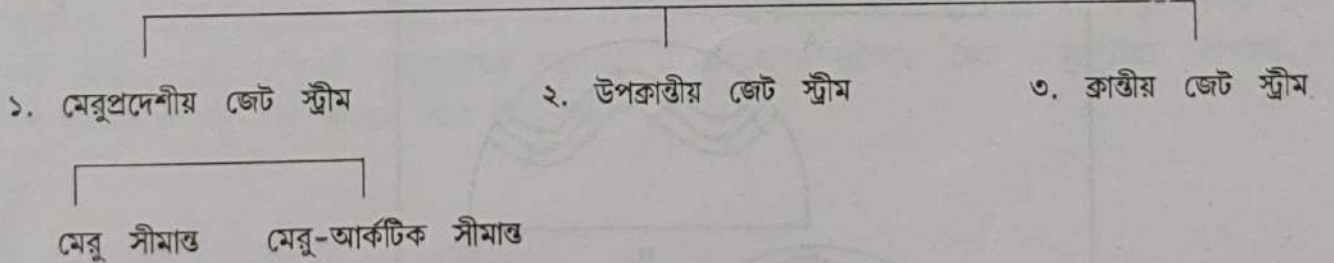 ১. মেরুপ্রদেশীয় জেট স্ট্রীম ২. উপক্রান্তীয় জেট স্ট্রীম ৩. ক্রান্তীয় জেট স্ট্রীম
মেরু সীমান্ত মেরু-আর্কটিক সীমান্ত